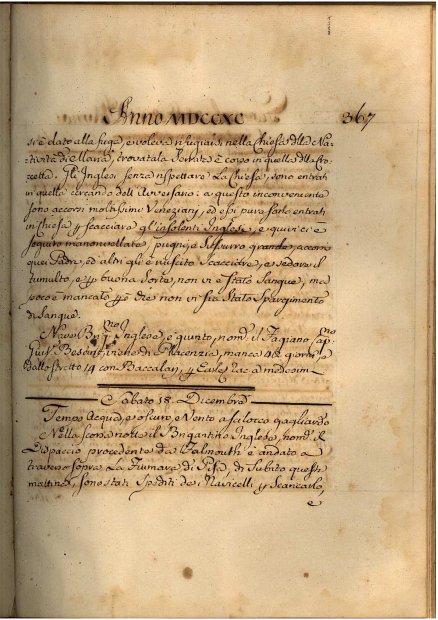 Anno MDCCXC
367
si è dato alla fuga, e voleva rifugiarsi nella Chiesa della Na=
tività di Maria, trovatala serrata è corso in quella della Cro=
cetta. Gli Inglesi senza rispettare La Chiesa, sono entrati
in quella cercando dell'Aversario: a questo inconveniente
sono accorsi moltissimi Veneziani, ed essi pure sono entrati
in Chiesa p scacciare gl'insolenti Inglesi, e quivi ci è
seguito manonvellate, pugni, e Susurro grande, accorsi
quei Padri, ed altri gli è riuscito Scacciare, e sedare il
tumulto, e p buona Sorte, non vi è stato Sangue, ma
poco è mancato che non vi sia stato Spargimento
di Sangue.
Nave Inglese, è giunto, nom. il Fagiano,
viene di Placenzia, manca 42 giorni e
dallo Stretto 14 con Baccalari, p
Sabato 18. Dicembre
Tempo Acqua, e oscuro, e Vento a scilocco gagliardo
Nella scorsa notte il Brigantino Inglese, nom. il
Dispaccio procedente da Falmouth è andato a
traverso sopra La Fiumara di Pisa, di subito questa
mattina, sono stati spediti dei Navicelli p Scaricarlo,
e